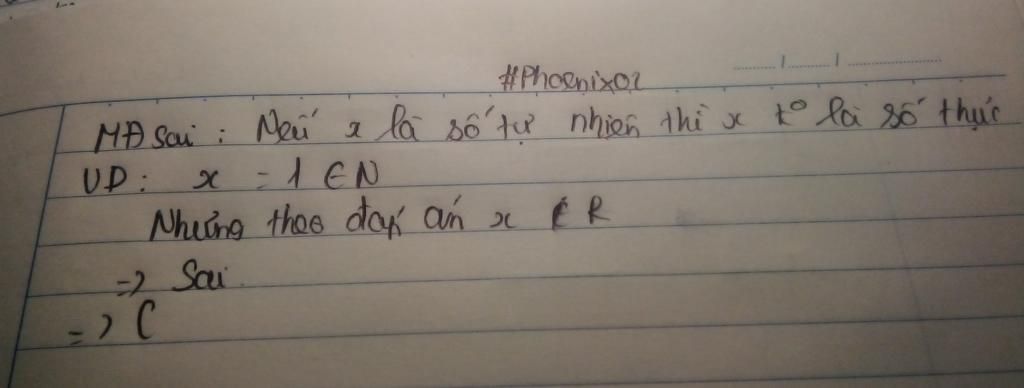 #Phoenix01
MĐ sai : Nếu x là số tự nhiên thì x k° là số thực
VD: x = 1 ∈ N
Nhưng theo đáp án x ∉ R
=> Sai
=> C